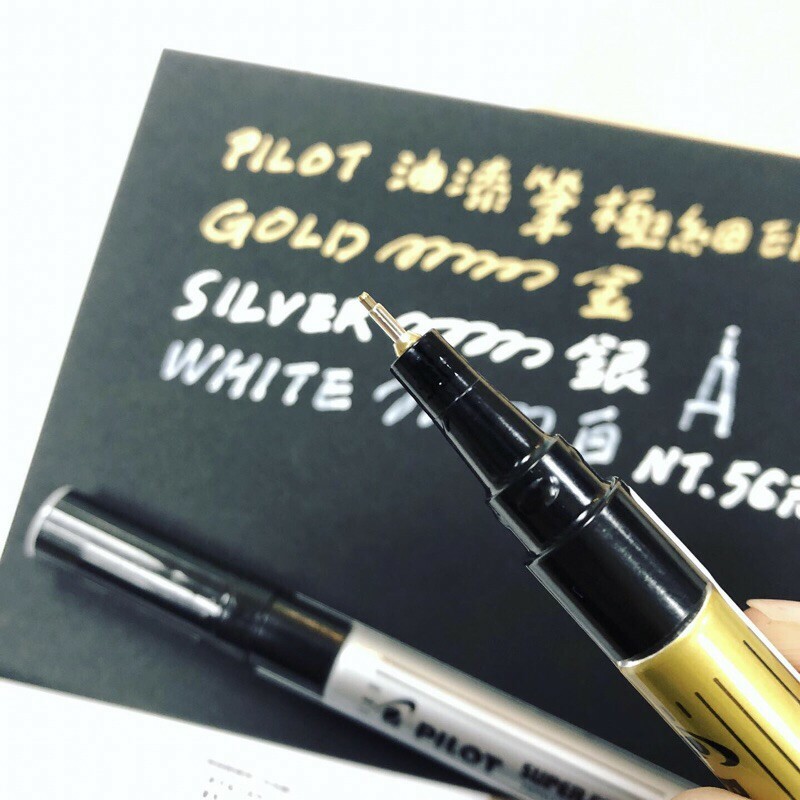 PILOT 油漆筆極細
GOLD 金
SILVER 銀
WHITE 白
NT.56元
PILOT SUPER